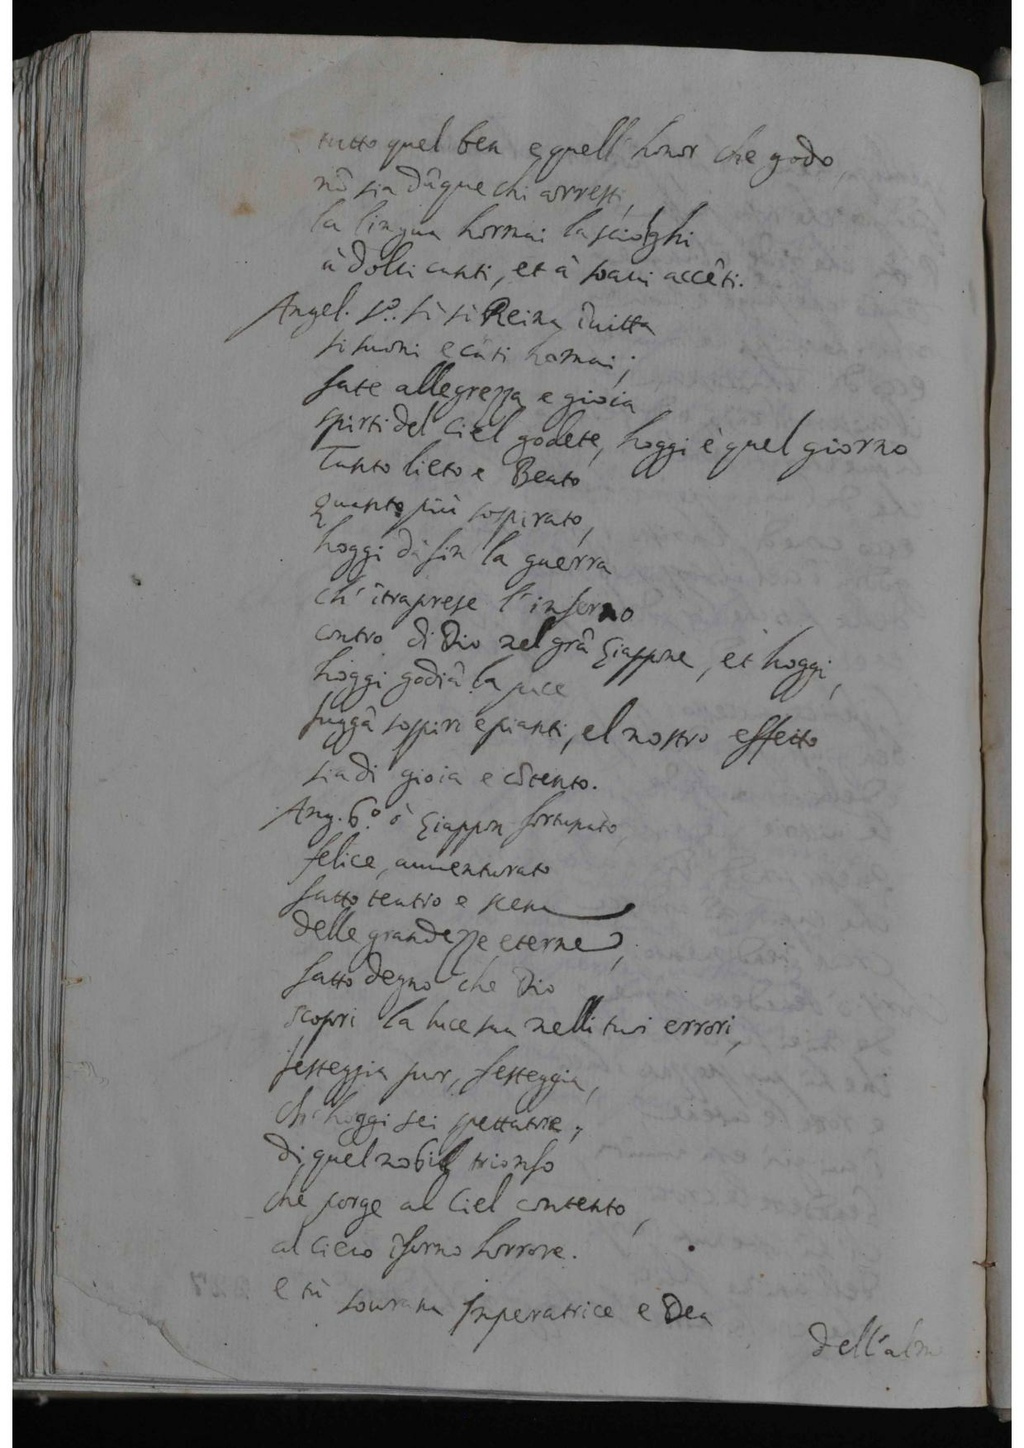 tutto quel ben e quell' honor che godo,
nõ sia dũque chi arresti,
la lingua hormai la sciolghi
à dolci canti, et à soavi accẽti.
Angel. s.º sì sì Reina ĩvitta
si suoni e cãti hormai;
fate allegrezza e gioia
spirti del Ciel godete, hoggi è quel giorno
Tanto lieto e Beato
quanto più sospirato,
hoggi dà fin la guerra
ch' ĩtraprese l'inferno
contro di Dio nel grã Giappone, et hoggi,
hoggi godiã la pace
fuggã sospiri e pianti, el nostro effetto
sia di gioia e cõtento.
Ang. 6.º ò Giappon fortunato,
felice, auuenturato
fatto teatro e scena
delle grandezze eterne,
fatto degno che Dio
scopri la luce sua nelli tuoi errori,
festeggia pur, festeggia,
ch' hoggi sei spettatore,
di quel nobil trionfo
che porge al Ciel contento,
al cieco ĩferno horrore.
e tù sourana Imperatrice e Dea
dell'alm